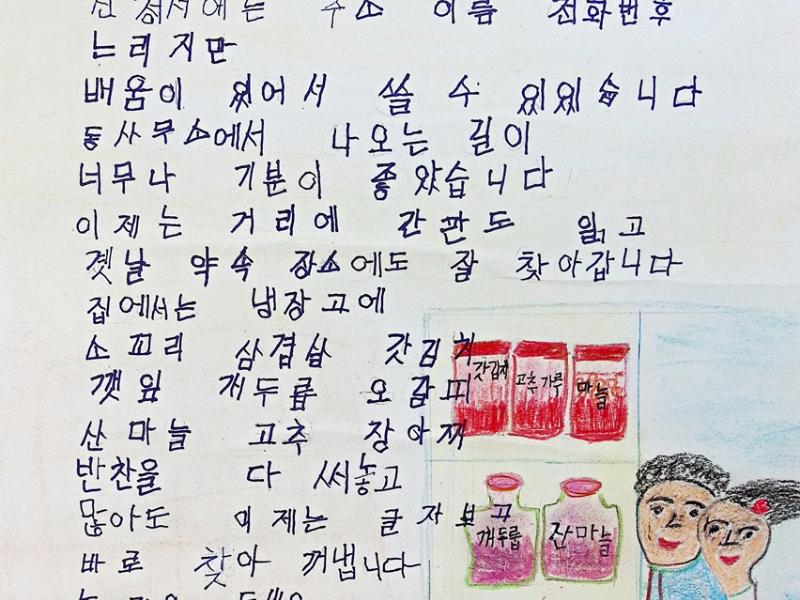 신청서에는 주소 이름 전화번호
느리지만
배움이 있어서 쓸 수 있있습니다
동사무소에서 나오는 길이
너무나 기분이 좋았습니다
이제는 거리에 간판도 읽고
곗날 약속 장소에도 잘 찾아갑니다
집에서는 냉장고에
소꼬리 삼겹살 갓김치
깻잎 개두릅 오갈피
산마늘 고추 장아찌
반찬을 다 써놓고
많아도 이제는 글자보고
바로 찾아 꺼냅니다
갓김치 고추가루 마늘
개두릅 산마늘